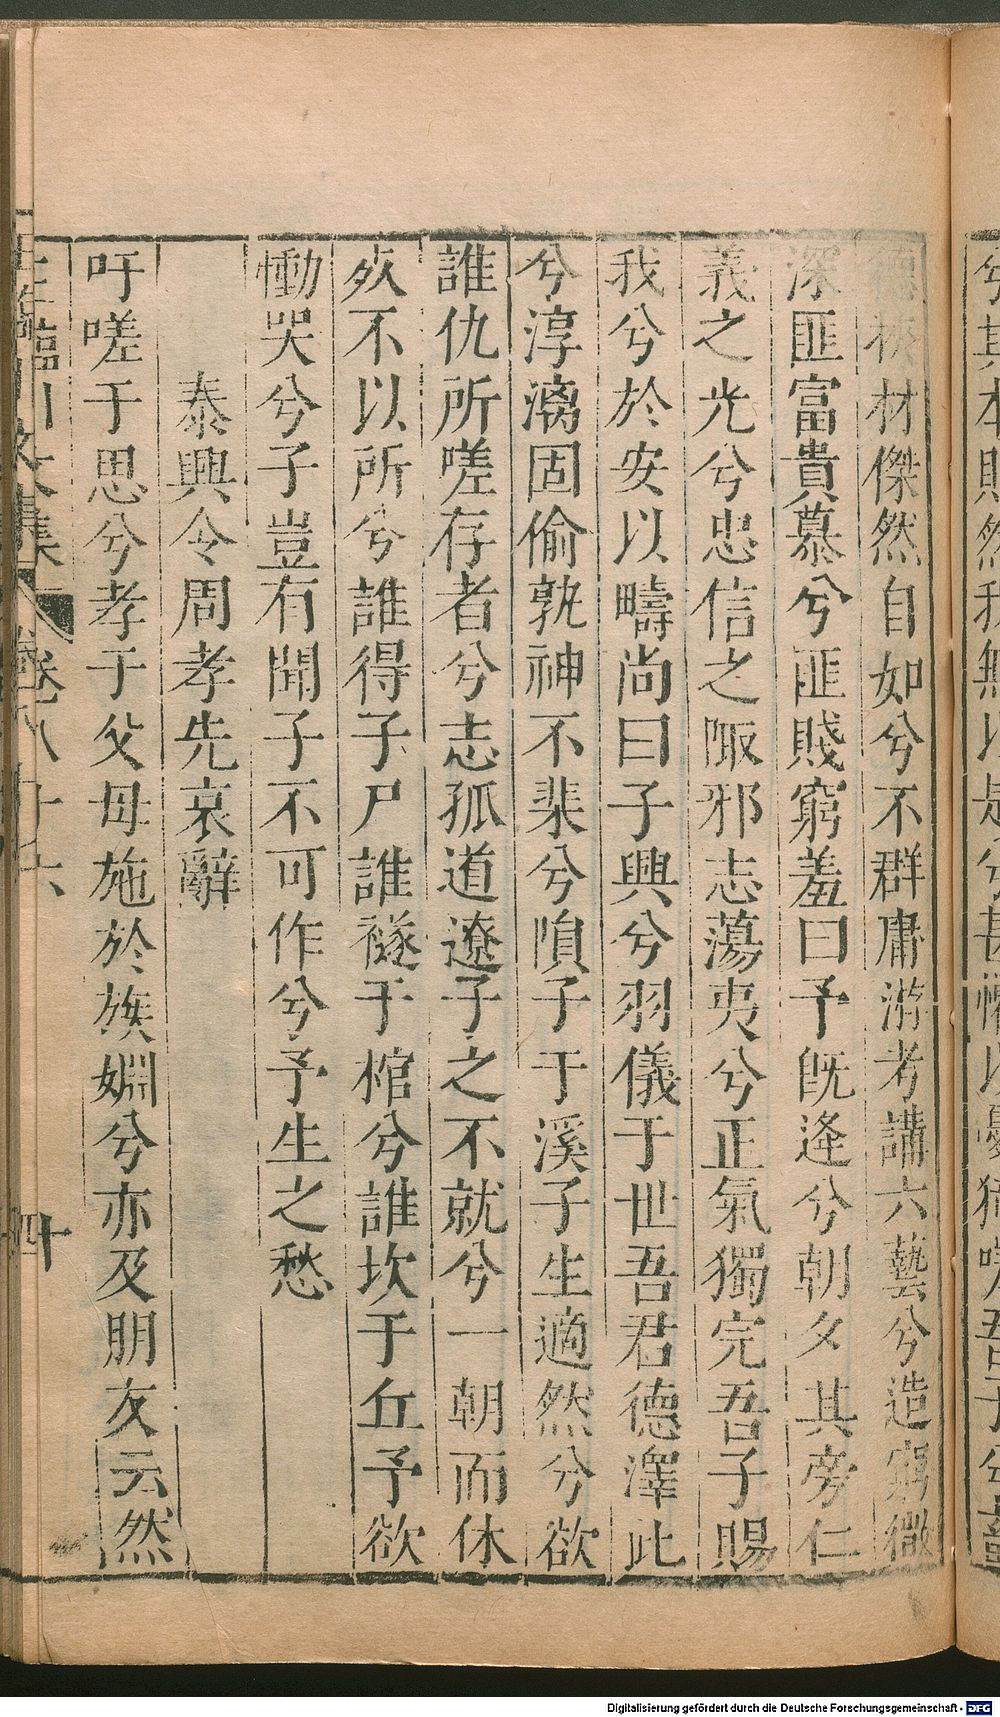 兮其本則然我無以是兮甚懼以憂猶吾子兮
德材傑然自如兮不群庸游考講六藝兮造窮微
深匪富貴慕兮匪賤窮羞曰予既逢兮朝夕其旁仁
義之光兮忠信之陬邪志蕩夷兮正氣獨完吾子賜
我兮於安以疇尚曰子興兮羽儀于世吾君德澤此
兮淳漓固偷孰神不棐兮隕子于溪子生適然兮欲
誰仇所嗟存者兮志孤道遼子之不就兮一朝而休
死不以所兮誰得子尸誰襚于棺兮誰坎于丘予欲
慟哭兮子豈有聞子不可作兮予生之愁
泰興令周孝先哀辭
吁嗟于思兮孝于父母施於族婣兮亦及朋友云然
王臨川文集 卷八十六 四十
Digitalisierung gefördert durch die Deutsche Forschungsgemeinschaft - DFG